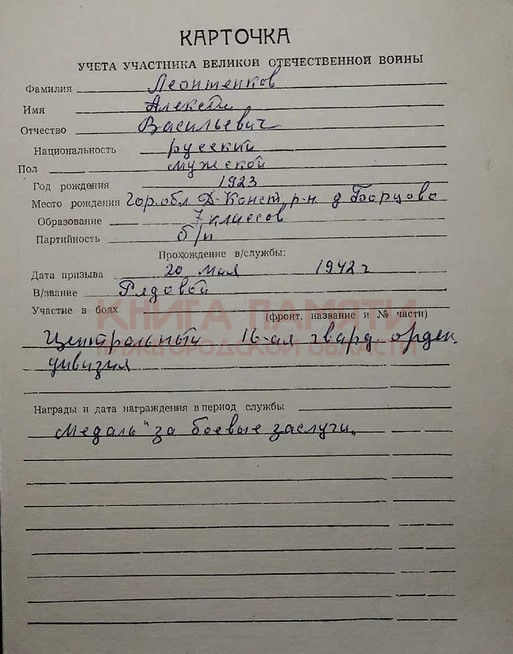 КАРТОЧКА
УЧЕТА УЧАСТНИКА ВЕЛИКОЙ ОТЕЧЕСТВЕННОЙ ВОЙНЫ
Фамилия Леонтенков
Имя Алексей
Отчество Васильевич
Национальность русский
Пол мужской
Год рождения 1923
Место рождения Гор. обл. Д-Конст. р-н д. Борцово
Образование 7 классов
Партийность б/п
Прохождение в/службы:
Дата призыва 20 мая 1942 г
В/звание Рядовой
Участие в боях
(фронт, название и № части)
КНИГА ПАМЯТИ
НИЖЕГОРОДСКОЙ ОБЛАСТИ
Центральный 16-ая гвард. орден.
дивизия
Награды и дата награждения в период службы
Медаль "за боевые заслуги"